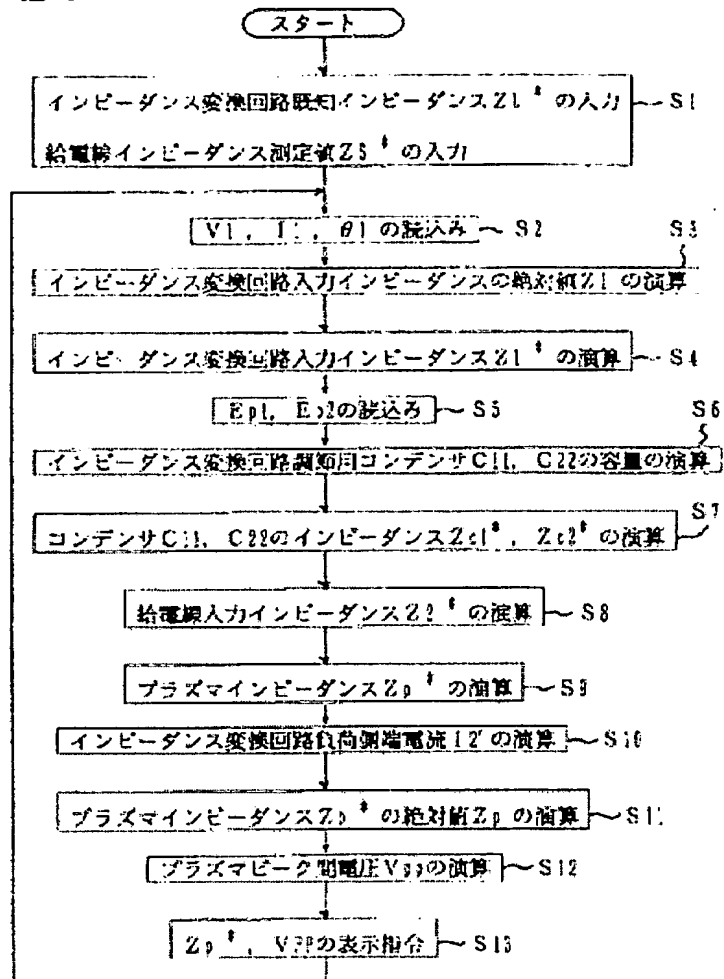 スタート
インピーダンス変換回路既知インピーダンスZ1* の入力 S1
給電線インピーダンス測定値Z3* の入力
V1, I1, θ1 の読込み S2
S3
インピーダンス変換回路入力インピーダンスの絶対値Z1 の演算
インピーダンス変換回路入力インピーダンスZ1* の演算 S4
Ep1, Ep2の読込み S5
S6
インピーダンス変換回路調節用コンデンサC11, C22の容量の演算
S7
コンデンサC11, C22のインピーダンスZc1*, Zc2* の演算
給電線入力インピーダンスZ2* の演算 S8
プラズマインピーダンスZp* の演算 S9
インピーダンス変換回路負荷側端電流I2'の演算 S10
プラズマインピーダンスZp* の絶対値Zp の演算 S11
プラズマピーク間電圧Vppの演算 S12
Zp*, VPPの表示指令 S13